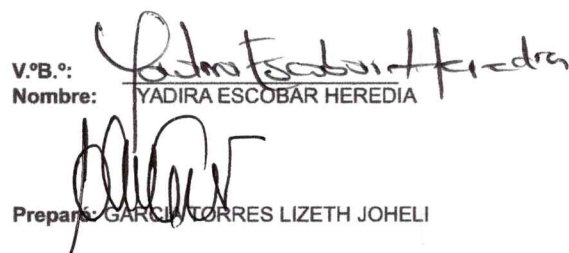 V.ºB.º: Yadira Escobar Heredia
Nombre: YADIRA ESCOBAR HEREDIA
Preparó: GARCIA TORRES LIZETH JOHELI